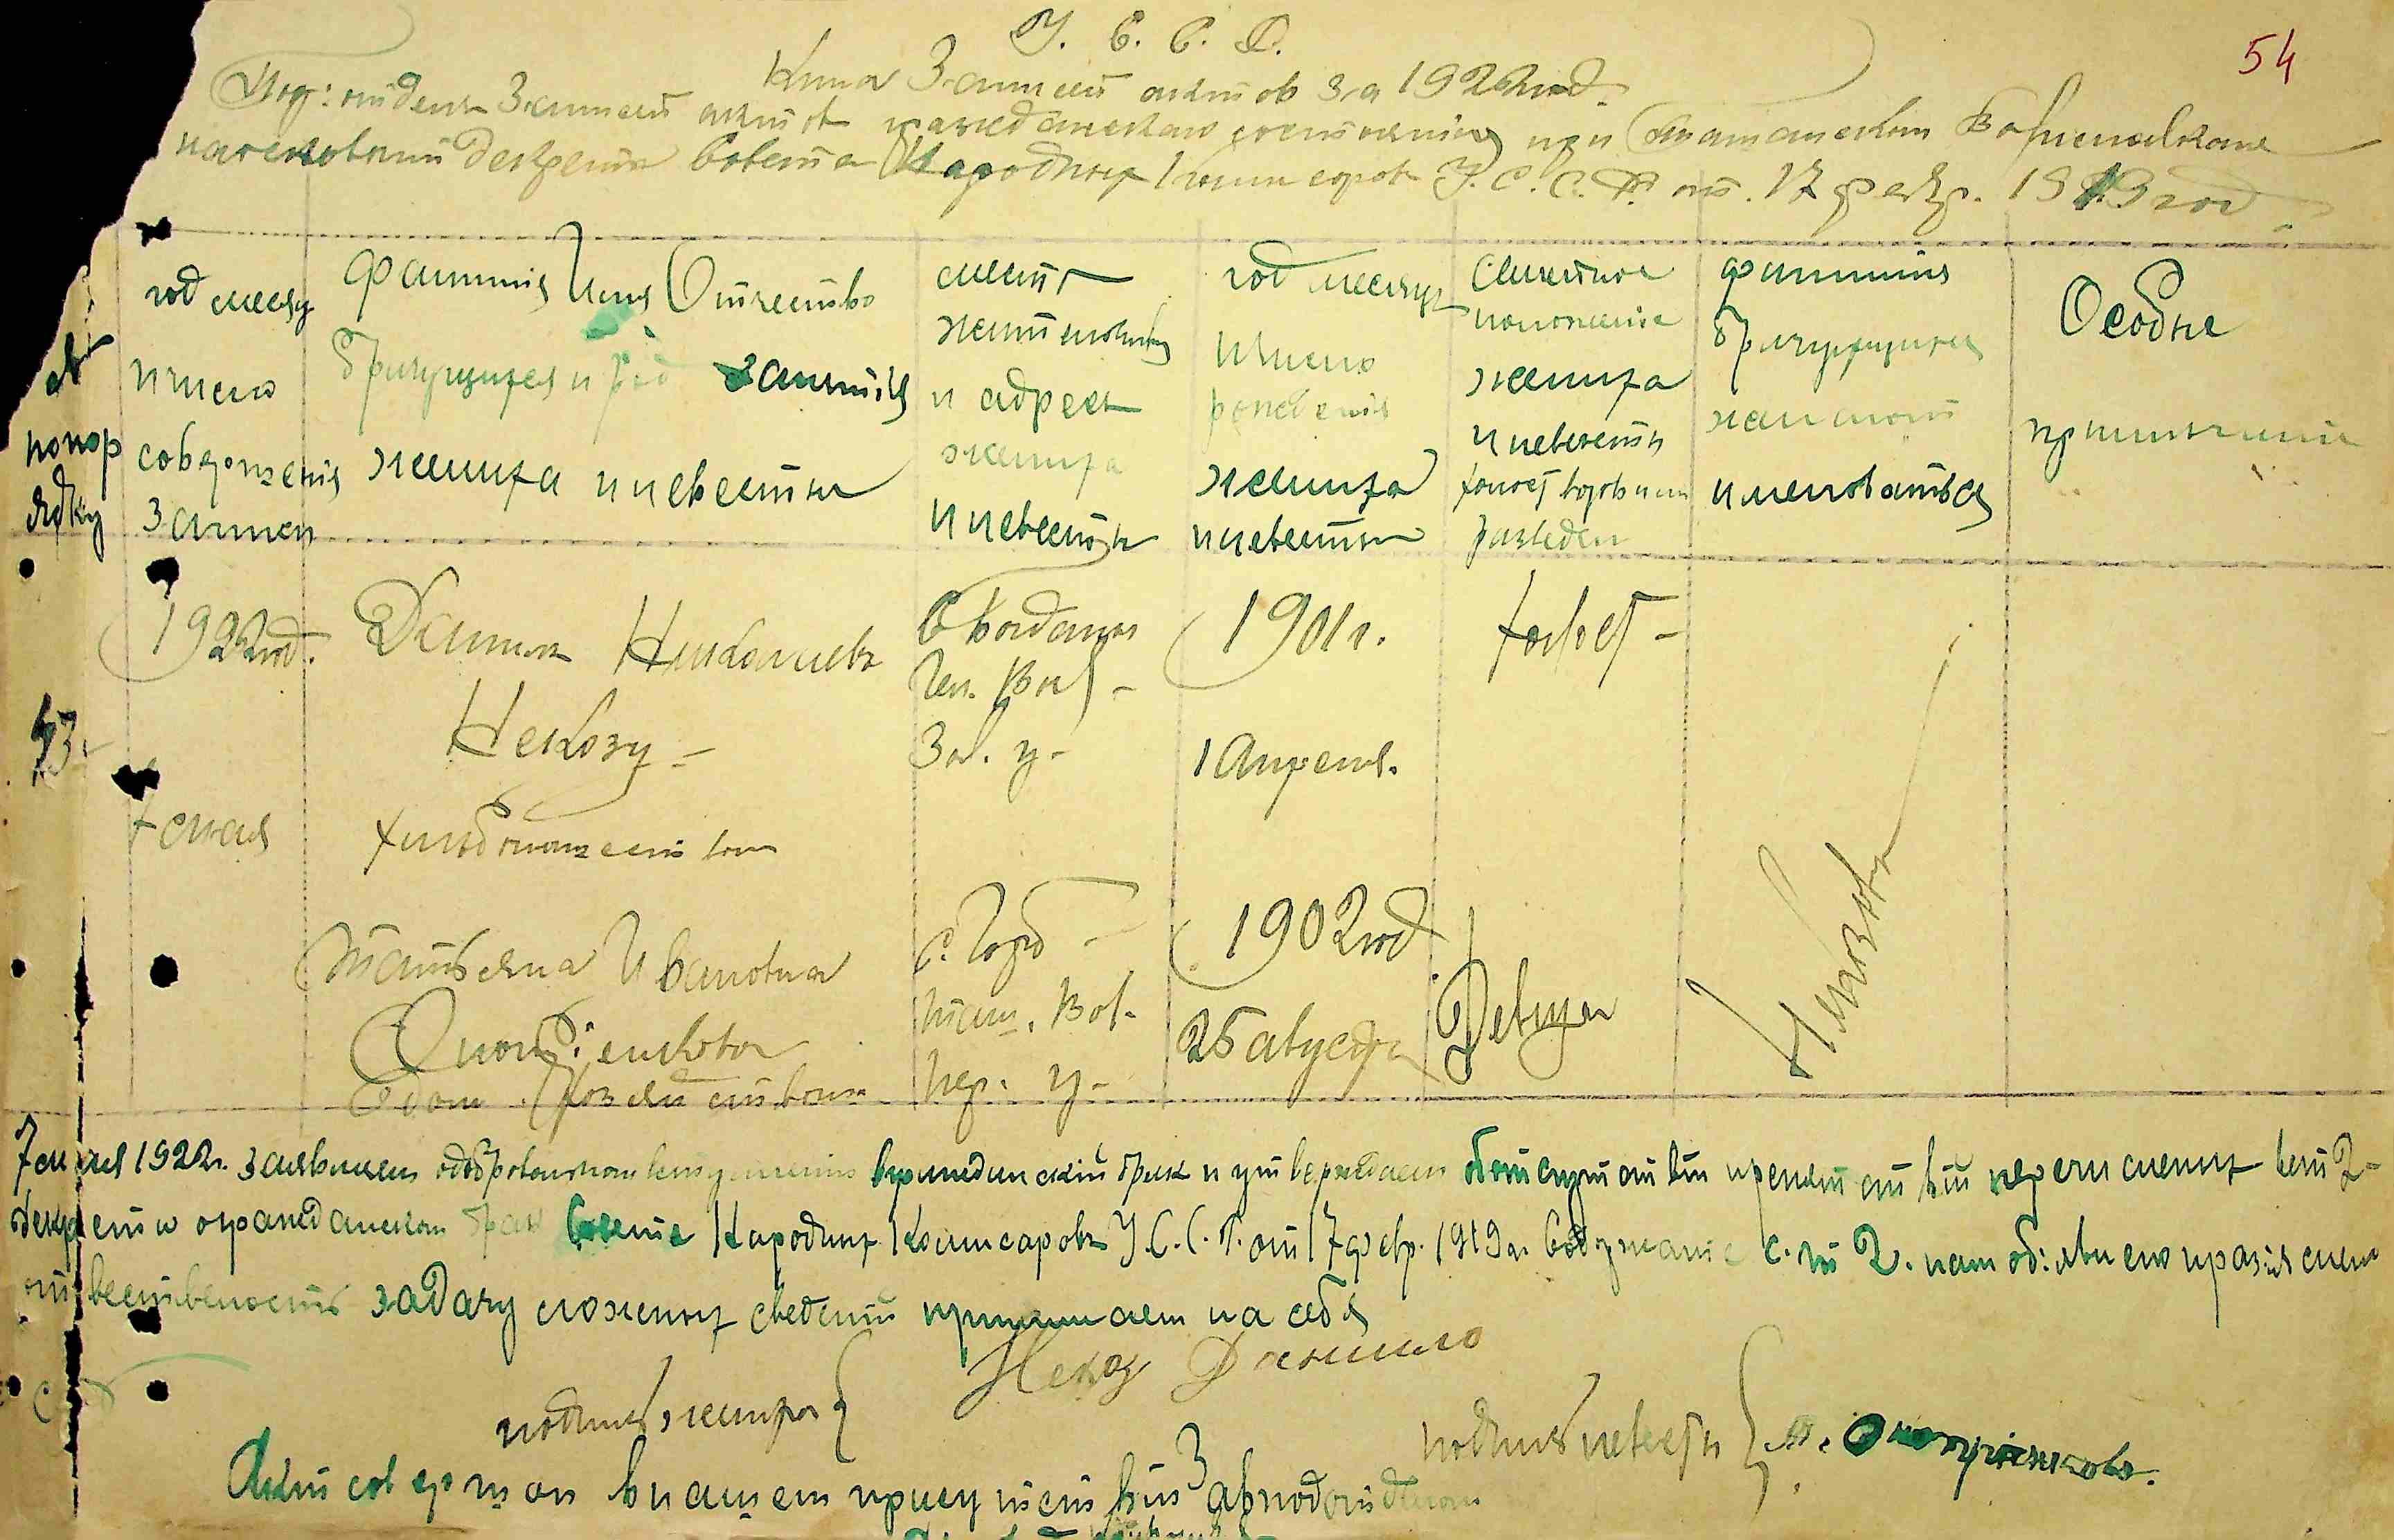 У. С. С. Р.
54
Книга Записей актов за 1922 год.
Под: отдела Записей актов гражданскаго состояния при Волисполкоме
на основании декрета Совета Народных Комисаров У. С. С. Р. от. 17 февр. 1919 год
№ попорядку
год месяц и число совершения записи
фамилия Имя Отчество брачущихся и род занятий жениха и невесты
место жительства и адрес жениха и невесты
год месяц и число рождения жениха и невесты
Семейное положение жениха и невесты холост вдов или разведен
фамилия брачующихся желают именоватся
Особые примечание
53.
1922 год.
7 мая
Данило Николаев
Некозу
хлебопашеством
С Богданов
Зол. у
1901 г.
1 Апреля.
холост
Некозов
Татьяна Ивановна
Онопріенкова
дом. хозяйством
С.
Вол.
Пер. у
1902 год
25 августа
Девица
7 мая 1922 г. заявляем о добровольном вступлении в гражданский брак и утверждаем отсутствии препятствий перечисленых в ст 2
декрета о гражданском браке Совета Народных Комисаров У. С. С. Р. от 17 февр. 1919 г. Содержание с. т 2. нам об:явлено и разяснено
ответственость за дачу ложных сведений принимаем на себя
подпись жениха { Некоз Данило
подпись невесты } Т. Оноприенкова.
Акт совершон в нашем присутствии Завподотделом